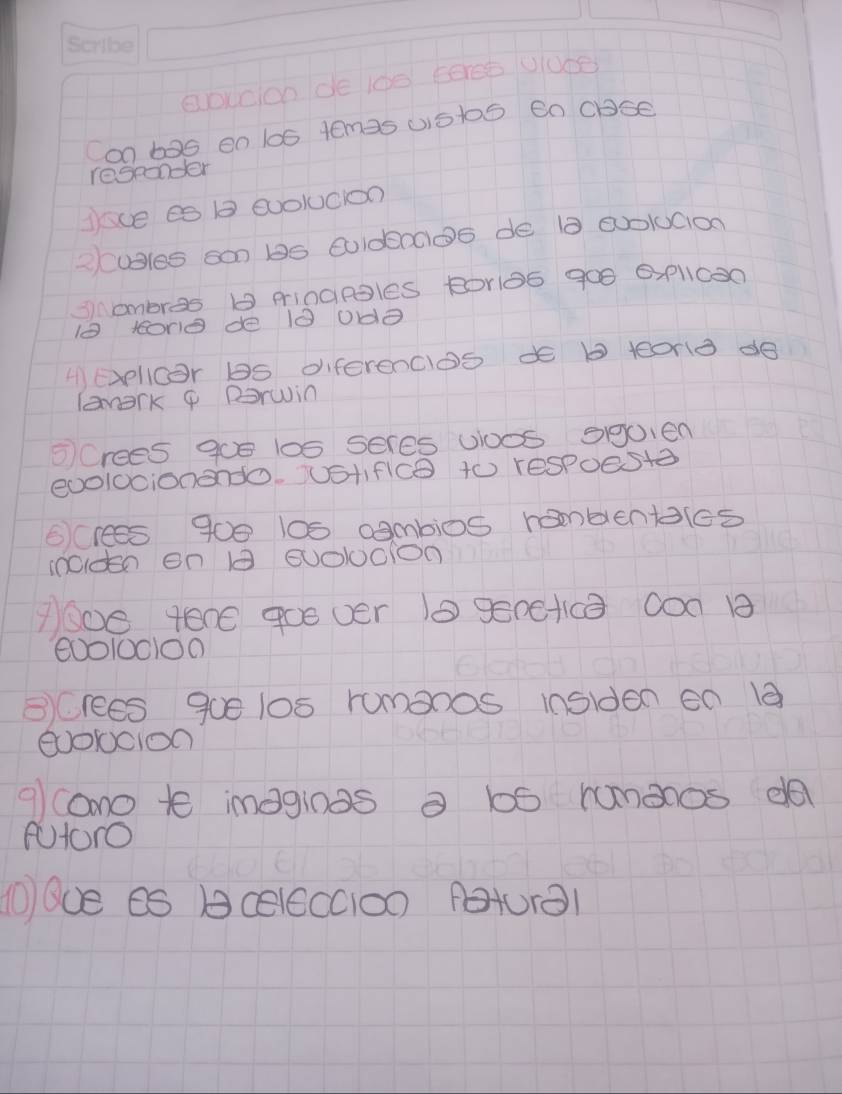 Scribe
evolucion de los seres vivos
Con bas en los temas vistos en clase
responder
1) Que es la evolucion
2) cuales son las evidencias de la evolucion
3) Nombras la principales teorias que explican
la teoria de la vida
4) Explicar las diferencias de la teoria de
lamark & Darwin
5) Crees que los seres vivos siguien
evolucionando. Justifica tu respuesta
6) Crees que los cambios hambientales
inciden en la evolucion
7) Que tene que ver la genetica con la
evolucion
8) Crees que los humanos insiden en la
evolucion
9) como te imaginas a los humanos del
futuro
10) Que es la celeccion natural